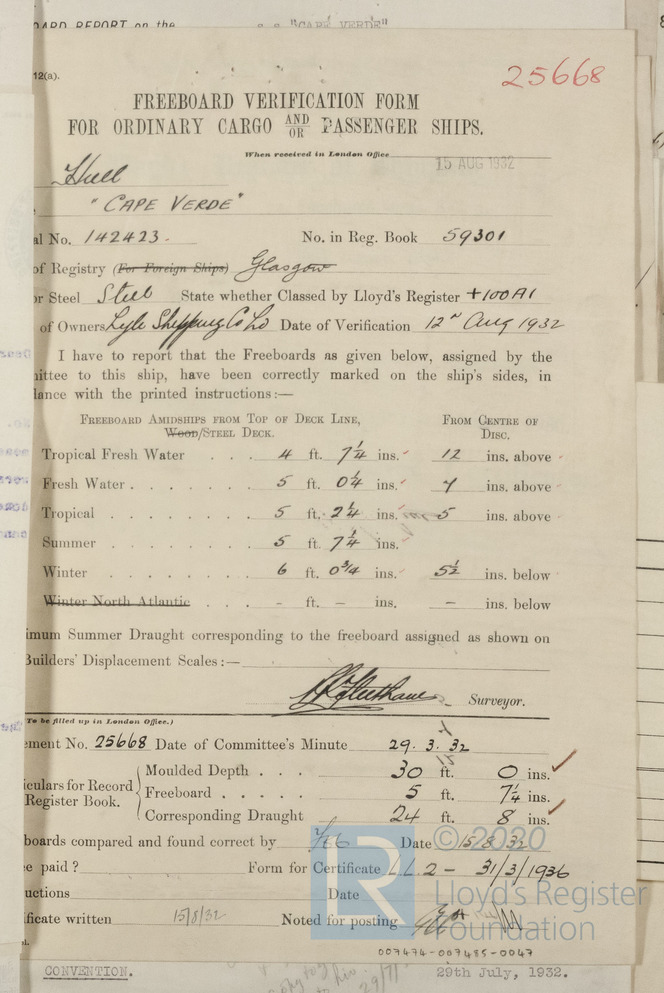 OARD REPORT on the s.s "CAPE VERDE"
12(a).
25668
FREEBOARD VERIFICATION FORM
FOR ORDINARY CARGO AND/OR PASSENGER SHIPS.
When received in London Office 15 AUG 1932
Hull
"CAPE VERDE"
al No. 142423. No. in Reg. Book 59301
of Registry (For Foreign Ships) Glasgow
or Steel Steel State whether Classed by Lloyd's Register +100A1
of Owners Lyle Shipping Co Ld Date of Verification 12th Aug 1932
I have to report that the Freeboards as given below, assigned by the
mittee to this ship, have been correctly marked on the ship's sides, in
dance with the printed instructions:—
FREEBOARD AMIDSHIPS FROM TOP OF DECK LINE, FROM CENTRE OF
WOOD/STEEL DECK. DISC.
Tropical Fresh Water . . . 4 ft. 7 1/4 ins. 12 ins. above
Fresh Water . . . . . . . . 5 ft. 0 1/4 ins. 7 ins. above
Tropical . . . . . . . . 5 ft. 2 1/4 ins. 5 ins. above
Summer . . . . . . . . 5 ft. 7 1/4 ins.
Winter . . . . . . . . 6 ft. 0 3/4 ins. 5 1/2 ins. below
Winter North Atlantic . . . - ft. - ins. - ins. below
imum Summer Draught corresponding to the freeboard assigned as shown on
Builders' Displacement Scales:—
Surveyor.
To be filled up in London Office.)
ement No. 25668 Date of Committee's Minute 29.3.32
iculars for Record
Register Book.
Moulded Depth . . . 30 ft. 0 ins.
Freeboard . . . . . 5 ft. 7 1/4 ins.
Corresponding Draught 24 ft. 8 ins.
boards compared and found correct by Date 15.8.32
e paid ? Form for Certificate LL.2 - 31/3/1936
uctions Date
ficate written 15/8/32 Noted for posting
© 2020
Lloyd's Register
Foundation
007474-007485-0047
CONVENTION. 29th July, 1932.